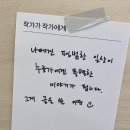 작가가 작가에게
나에겐 평범한 일상이
누군가에겐 특별한
이야기가 됩니다.